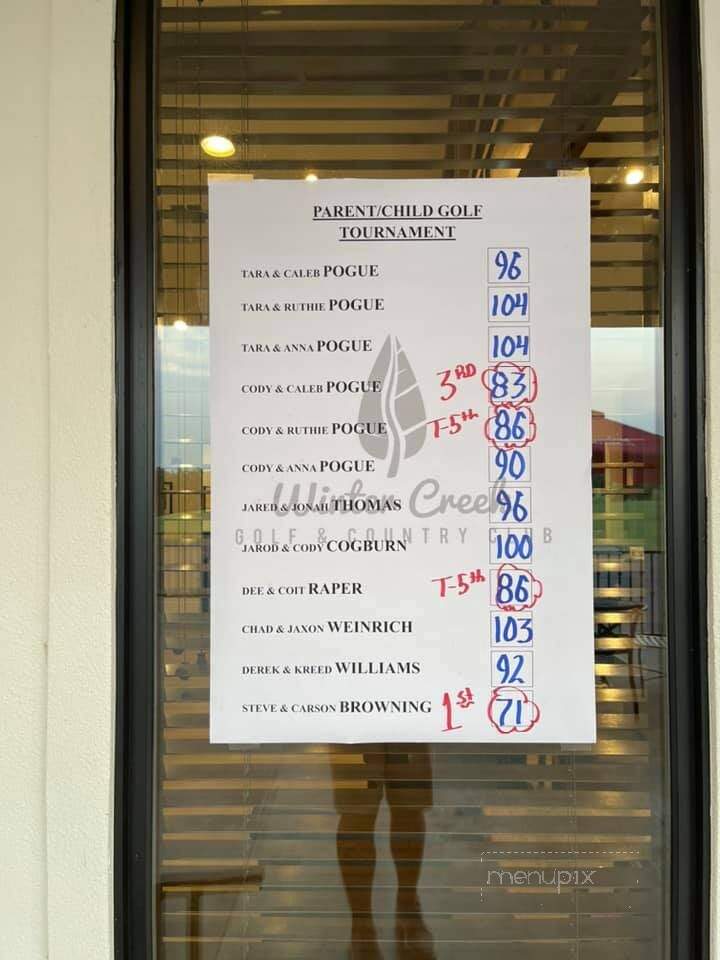 PARENT/CHILD GOLF
TOURNAMENT
TARA & CALEB POGUE 96
TARA & RUTHIE POGUE 104
TARA & ANNA POGUE 104
CODY & CALEB POGUE 3RD 83
CODY & RUTHIE POGUE T-5th 86
CODY & ANNA POGUE 90
JARED & JONAH THOMAS 96
Winter Creek
GOLF & COUNTRY CLUB
JAROD & CODY COGBURN 100
DEE & COIT RAPER T-5th 86
CHAD & JAXON WEINRICH 103
DEREK & KREED WILLIAMS 92
STEVE & CARSON BROWNING 1st 71
menupix